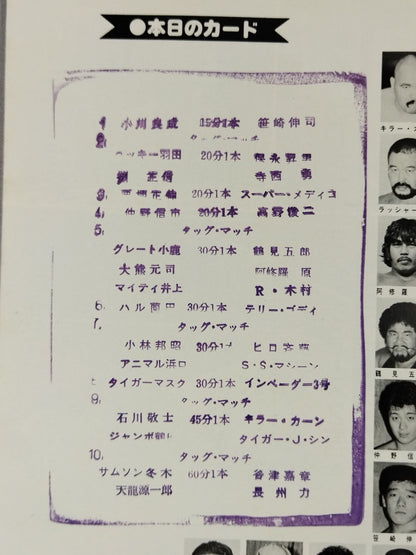 ●本日のカード
1. 小川良成 15分1本 笹崎伸司
2. タッグ・マッチ
ロッキー羽田 20分1本 保永昇男
寺西 勇
3. 20分1本 スーパー・メディコ
4. 仲野信市 20分1本 高野俊二
5. タッグ・マッチ
グレート小鹿 30分1本 鶴見五郎
大熊元司 阿修羅 原
マイティ井上 R・木村
6. ハル薗田 30分1本 テリー・ゴディ
7. タッグ・マッチ
小林邦昭 30分1本 ヒロ斉藤
アニマル浜口 S・S・マシーン
タイガーマスク 30分1本 インベーダー3号
9. タッグ・マッチ
石川敬士 45分1本 キラー・カーン
ジャンボ鶴田 タイガー・J・シン
10. タッグ・マッチ
サムソン冬木 60分1本 谷津嘉章
天龍源一郎 長州 力
キラー・
ラッシャー
阿修羅
鶴見五
仲野信
笹崎伸